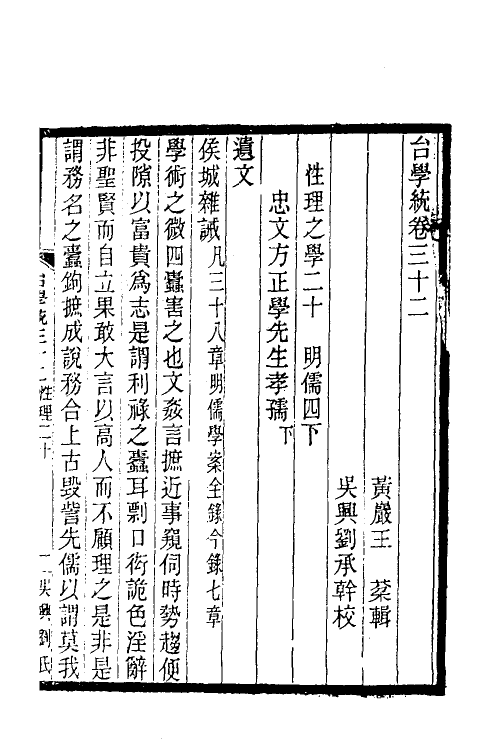 台學統卷三十二
黃巖王 棻輯
吳興劉承幹校
性理之學二十 明儒四下
忠文方正學先生孝孺下
遺文
侯城雜誡凡三十八章明儒學案全錄今錄七章
學術之微四蠹害之也文姦言摭近事窺伺時勢趨便
投隙以富貴爲志是謂利祿之蠹耳剽口衒詭色淫辭
非聖賢而自立果敢大言以高人而不顧理之是非是
謂務名之蠹鉤摭成說務合上古毀訾先儒以謂莫我
台學統三十二 性理二十 一 吳興劉氏